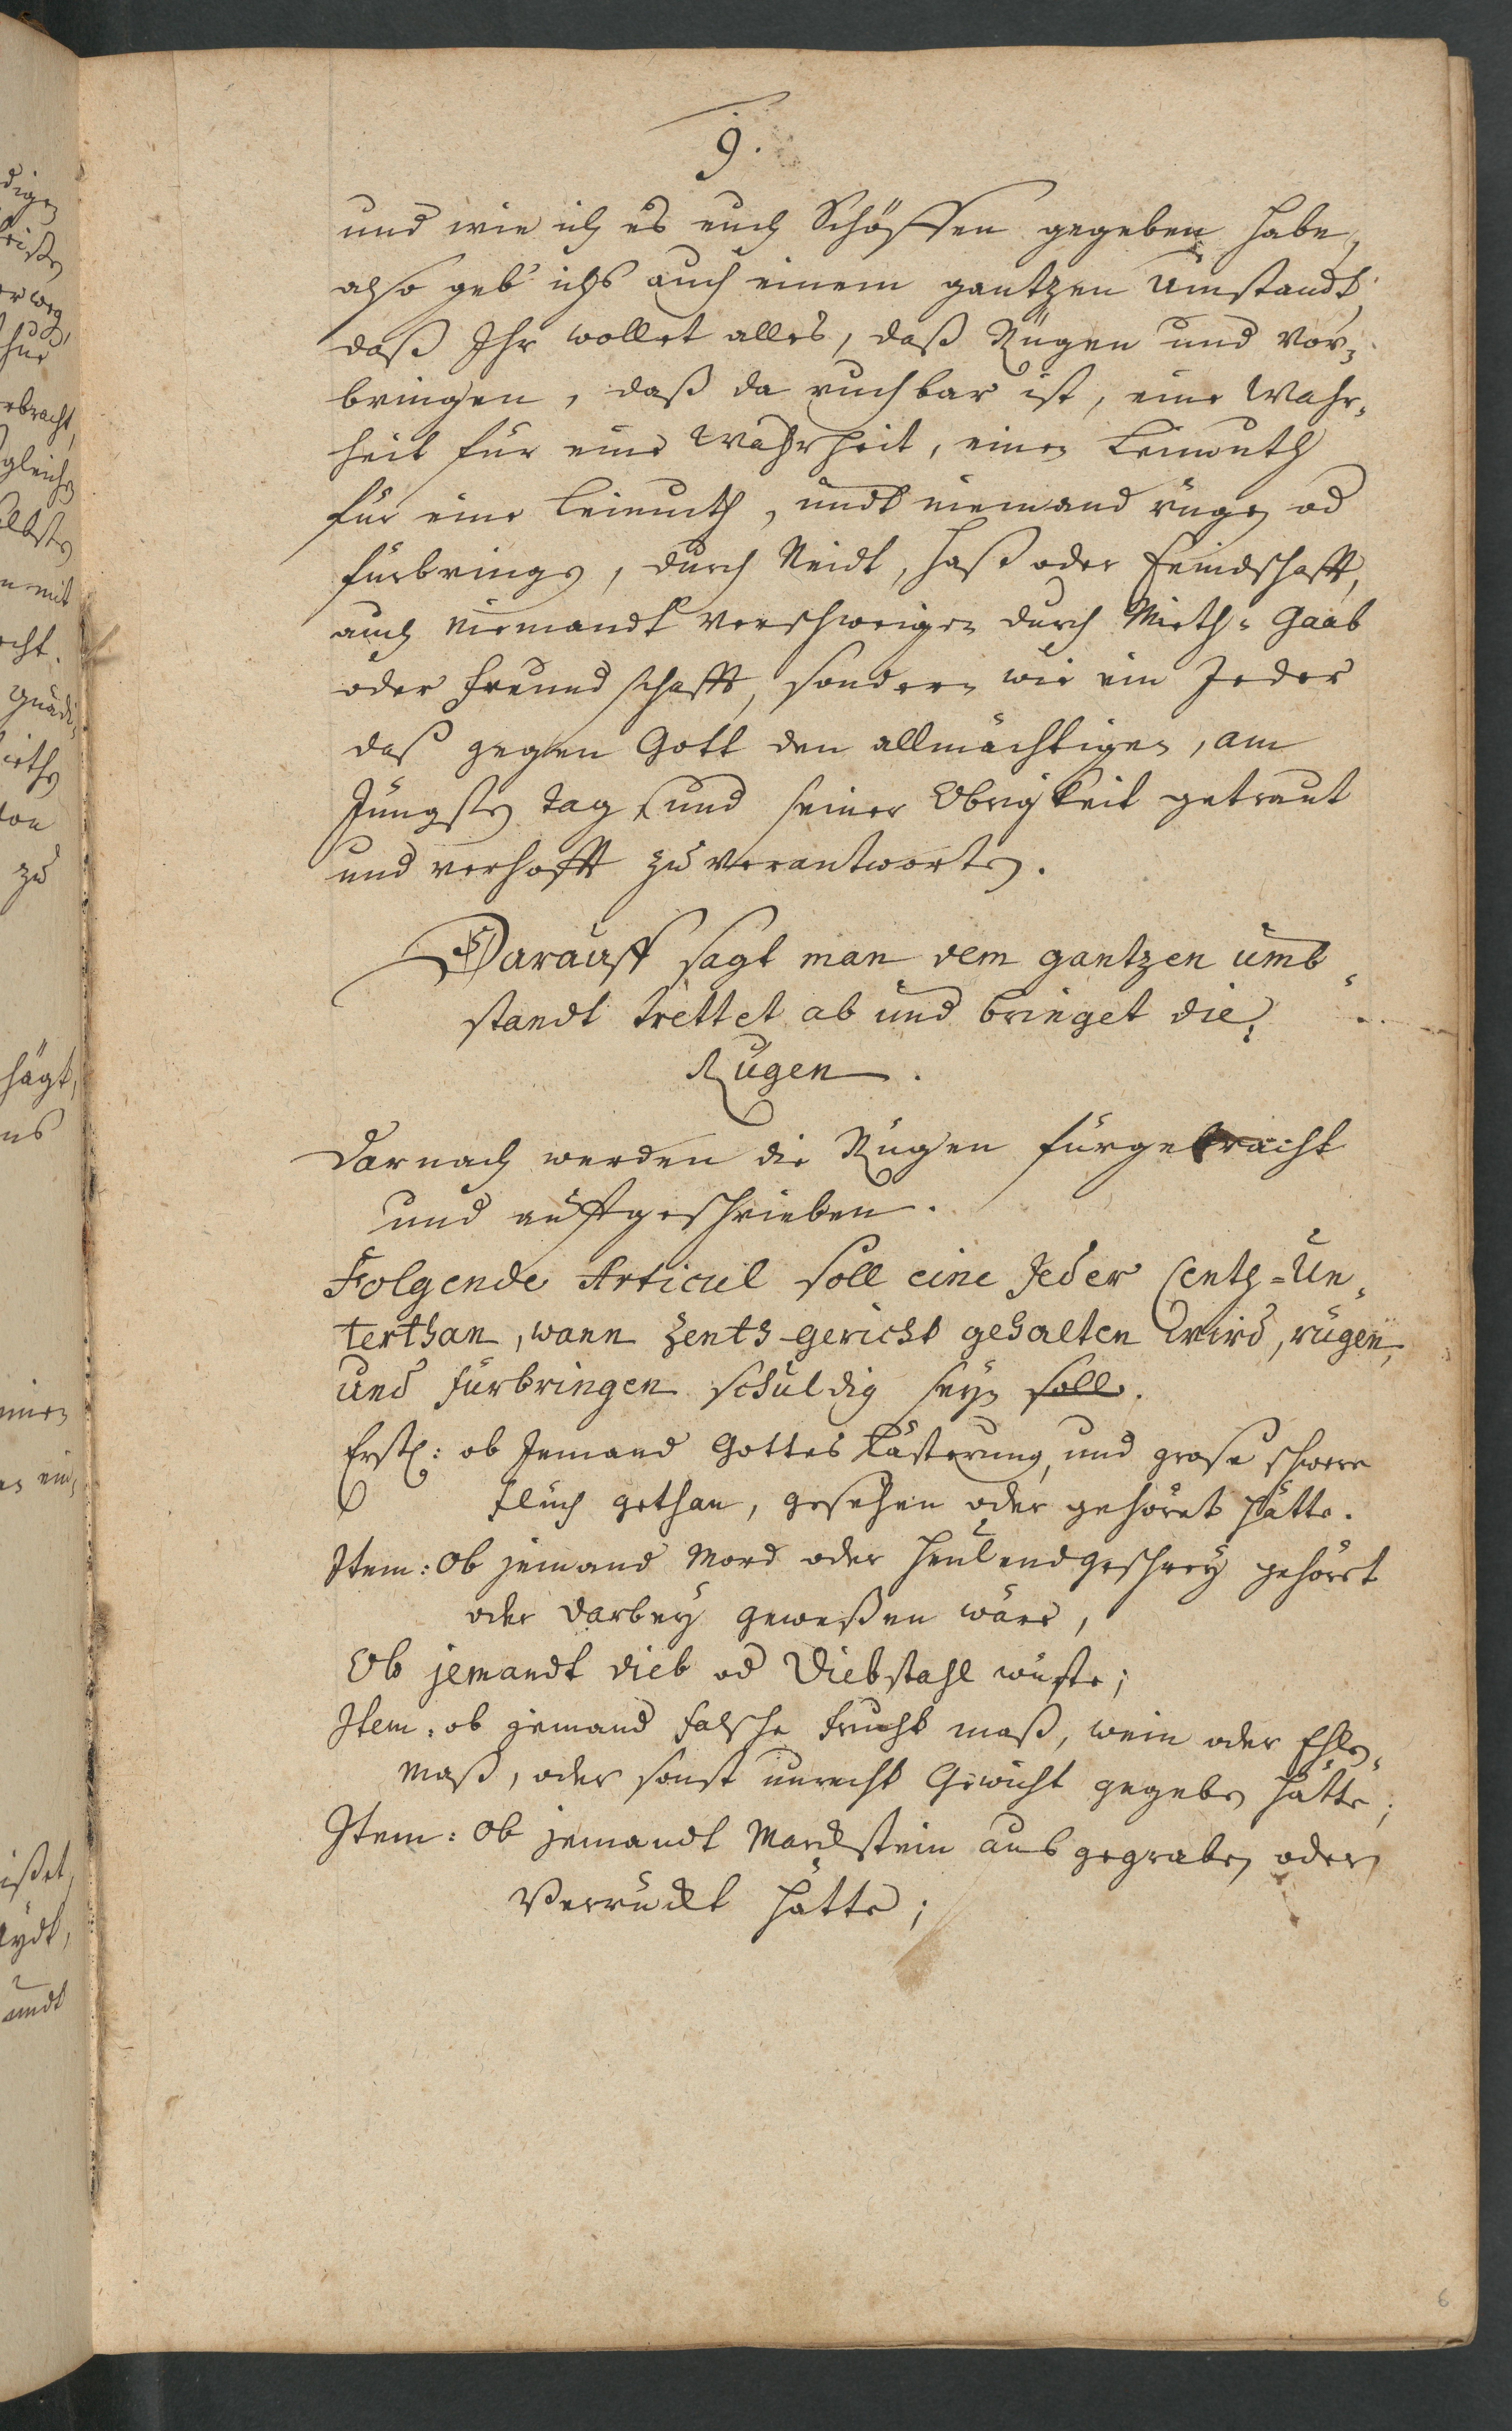 9.
und wie ich es euch Schöffen gegeben habe,
also geb ichs auch einem gantzen Umstandt
daß Ihr wollet alles, daß Rügen und vor-
bringen, daß da ruchbar ist, eine Wahr-
heit für eine Wahrheit, einen Leimuth
für eine Leimuth, undt niemand rügen od
fürbringen, durch Neidt, Haß oder Feindschafft,
auch niemandt verschweigen durch Mieth- Gaab
oder Freundschafft, sondern wie ein Jeder
daß gegen Gott den allmächtigen, am
Jüngsten Tag und seiner Obrigkeit getraut
und verhofft zu verantworten.
Darauff sagt man dem gantzen umb-
standt trettet ab und bringet die
Rügen.
Darnach werden die Rügen fürgebracht
und auffgeschrieben.
Folgende Articul soll eine Jeder Centh-Un-
terthan, wann Zenth-gericht gehalten wird, rügen,
und fürbringen schuldig seyn soll.
Erstl: ob Jemand Gottes Lästerung, und grose schwere
Fluch gethan, gesehen oder gehöret hätte.
Item: Ob jemand Mord oder Heulendgeschrey gehöret
oder darbey geweßen wäre,
Ob jemandt dieb od Diebstahl wüste;
Item: ob jemand falsche frucht maß, wein oder Ehlen-
maß, oder sonst unrecht Gewicht gegeben hätte;
Item: Ob jemandt Marckstein ausgegraben oder
Verruckt hätte;
6